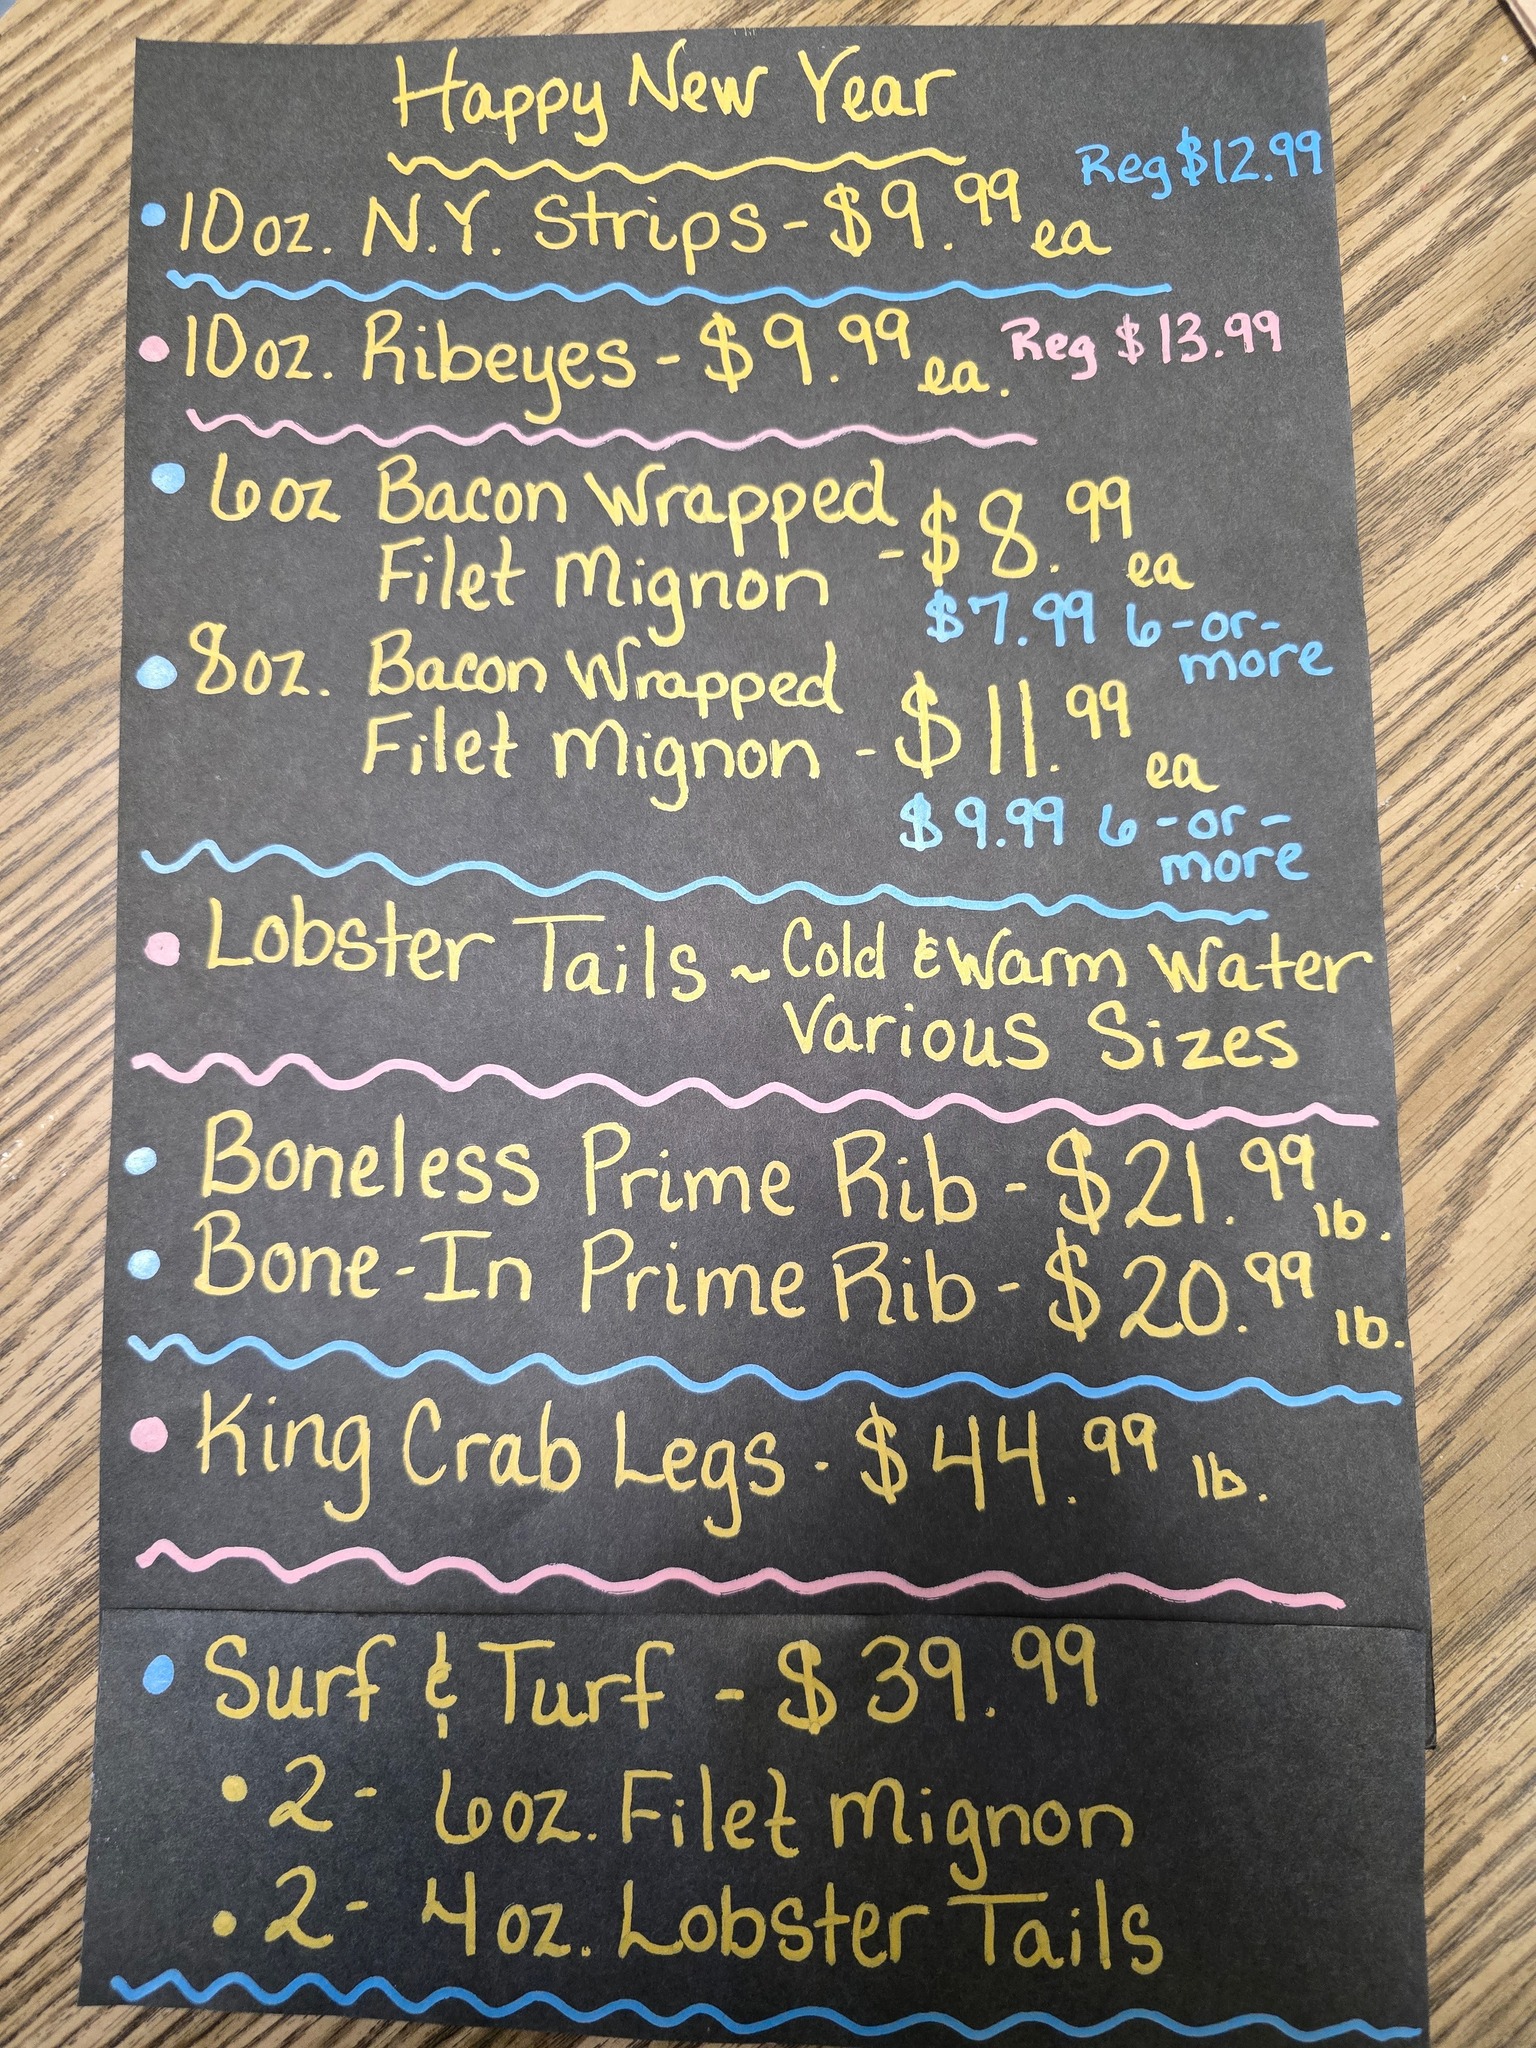 Happy New Year
Reg $12.99
• 10oz. N.Y. Strips - $9.99 ea
• 10oz. Ribeyes - $9.99 ea. Reg $13.99
• 6oz Bacon Wrapped
Filet Mignon - $8.99 ea
$7.99 6-or-
more
• 8oz. Bacon Wrapped
Filet Mignon - $11.99 ea
$9.99 6-or-
more
• Lobster Tails ~ Cold & Warm Water
Various Sizes
• Boneless Prime Rib - $21.99 lb.
• Bone-In Prime Rib - $20.99 lb.
• King Crab Legs - $44.99 lb.
• Surf & Turf - $39.99
• 2 - 6oz. Filet Mignon
• 2 - 4oz. Lobster Tails